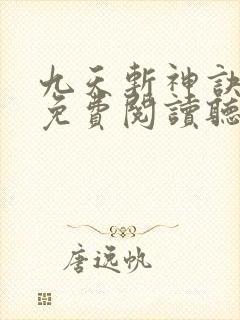 九天斬神訣
免費閱讀聽
唐逸帆